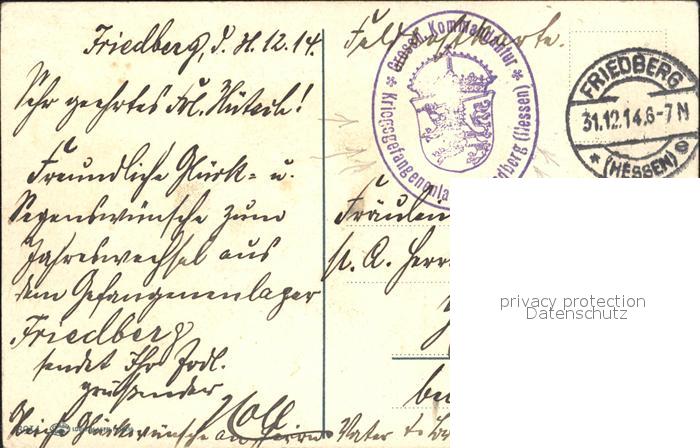 Friedberg, d. 31.12.14.
Feldpostkarte.
Sehr geehrtes Frl. Hütsch!
Freundliche Glück- u.
Segenswünsche zum
Jahreswechsel aus
dem Gefangenenlager
Friedberg
sendet Ihr frdl.
grüssender
Noll
Glückwünsche an Herrn Vater
Grossh. Kommandantur
* Kriegsgefangenenla Friedberg (Hessen) *
FRIEDBERG
31.12.14.6-7N
* (HESSEN)
Fräulein
p. A. Herr
privacy protection
Datenschutz